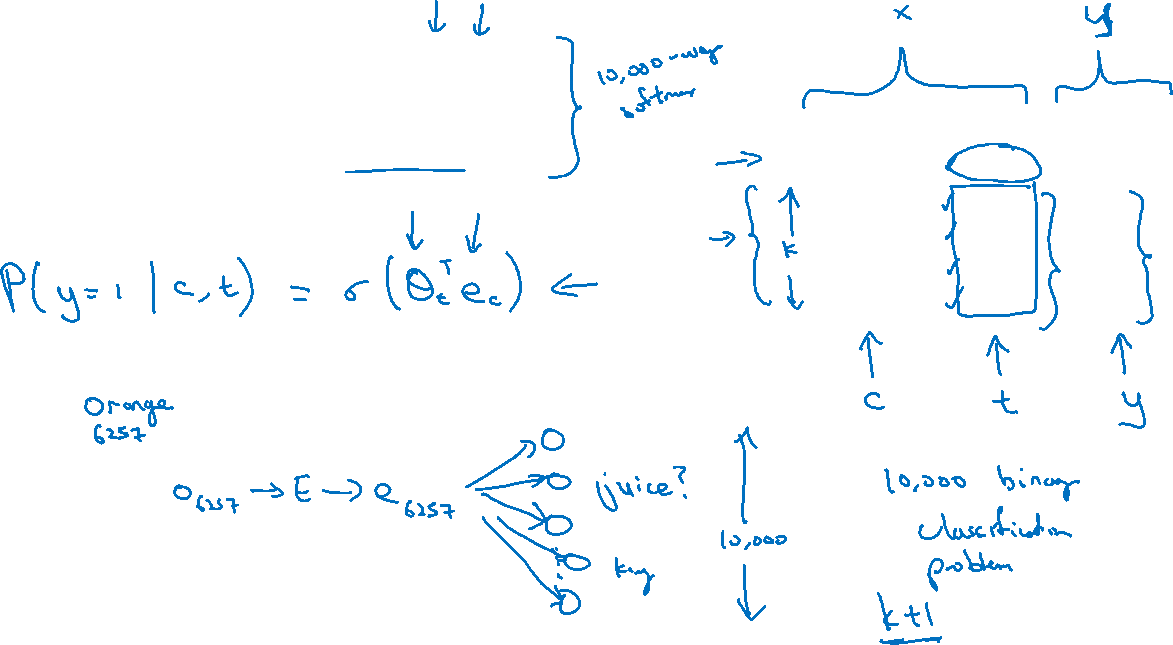 x y
10,000-way
softmax
k
P(y=1 | c,t) = σ(θ_t^T e_c)
c t y
Orange
6257
o_6257 → E → e_6257
juice?
10,000
king
10,000 binary
classification
problem
k+1